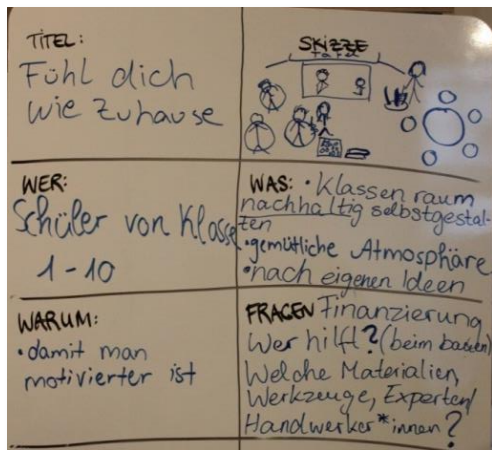 TITEL:
Fühl dich
wie Zuhause
SKIZZE
Tafel
WER:
Schüler von Klasse
1-10
WAS: • Klassenraum
nachhaltig selbstgestal-
ten
• gemütliche Atmosphäre
• nach eigenen Ideen
WARUM:
• damit man
motivierter ist
FRAGEN Finanzierung
Wer hilft? (beim bauen)
Welche Materialien,
Werkzeuge, Experten/
Handwerker*innen?